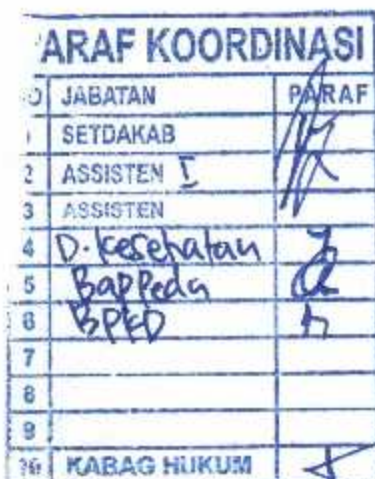 ARAF KOORDINASI
O JABATAN PARAF
1 SETDAKAB
2 ASSISTEN I
3 ASSISTEN
4 D. Kesehatan
5 Bappeda
6 BPKD
7
8
9
10 KABAG HUKUM